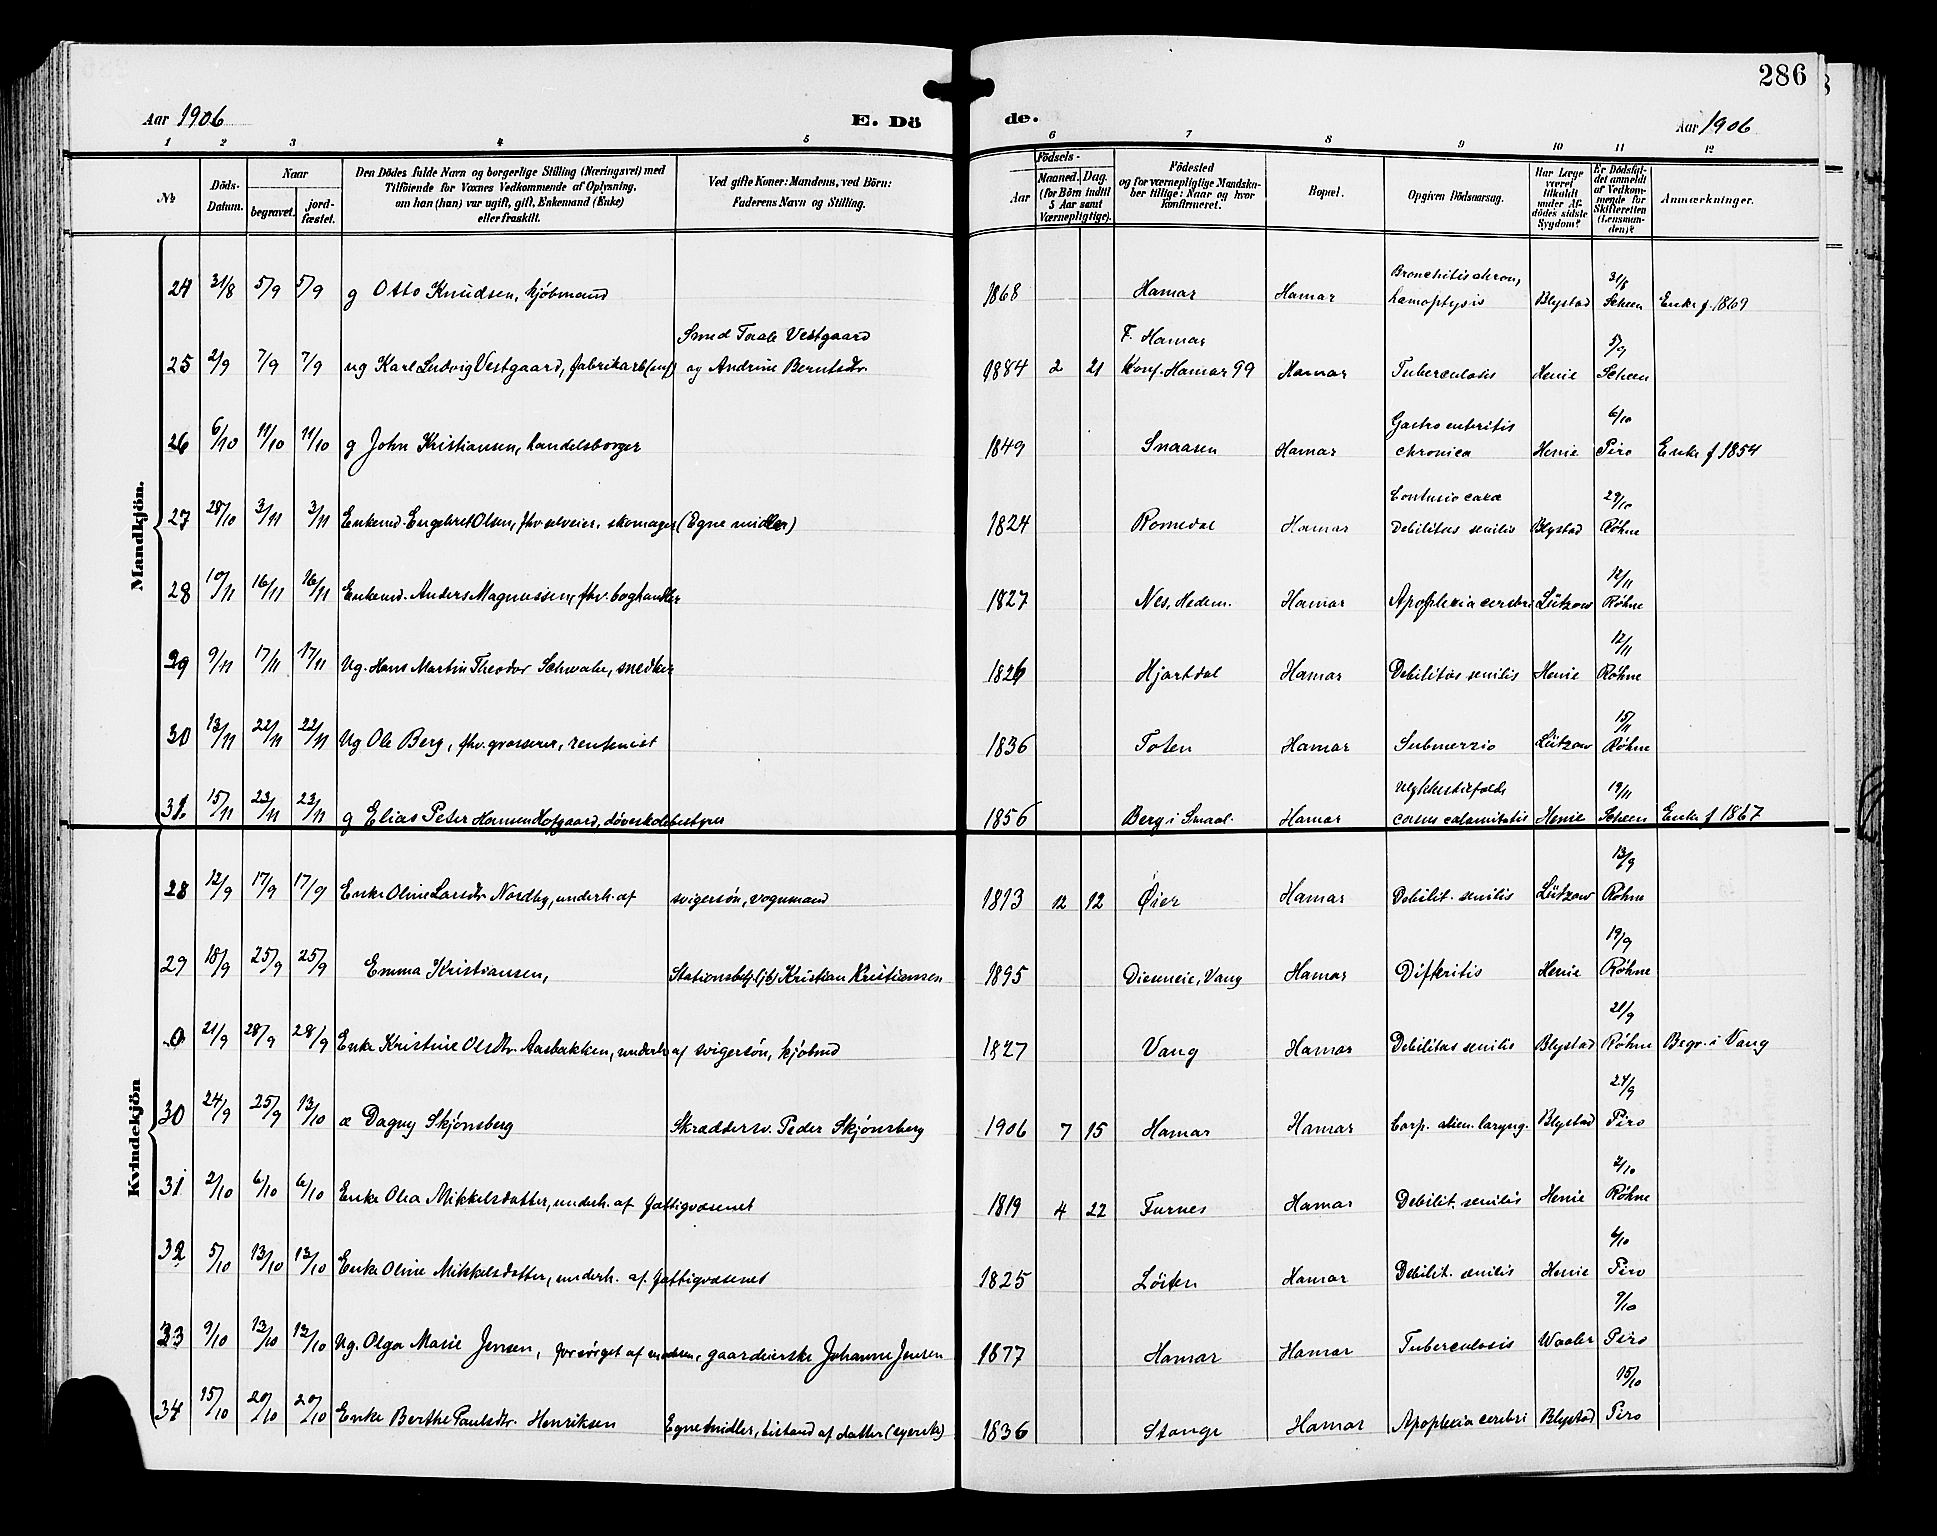 286
Aar 1906
E. Dö
de.
Aar 1906
1 2 3 4 5 6 7 8 9 10 11 12
№
Döds-Datum.
Naar
begravet.
jord-fæstet.
Den Dödes fulde Navn og borgerlige Stilling (Næringsvei) med
Tilföiende for Voxnes Vedkommende af Oplysning,
om han (hun) var ugift, gift, Enkemand (Enke)
eller fraskilt.
Ved gifte Koner: Mandens, ved Börn:
Faderens Navn og Stilling.
Födsels-
Aar
Maaned. Dag.
(for Börn indtil
5 Aar samt
Værnepligtige).
Födested
og for værnepligtige Mandska-
ber tillige: Naar og hvor
konfirmeret.
Bopæl.
Opgiven Dödsaarsag.
Har Læge
været
tilkaldt
under Af-
dödes sidste
Sygdom?
Er Dödsfal-
det anmeldt
af Vedkom-
mende for
Skifteretten
(Lensman-
den)?
Anmærkninger.
Mandkjön.
24 31/8 5/9 5/9 g Otto Knudsen, kjøbmand 1868 Hamar Hamar Bronchitis chron, hæmoptysis Blystad 31/8 Scheen Enke f. 1869
25 2/9 7/9 7/9 ug Karl Ludvig Vestgaard, fabrikarb (suf) Smed Taale Vestgaard og Andrine Berntsdr. 1884 2 21 F. Hamar Konf. Hamar 99 Hamar Tuberculosis Henie 5/9 Scheen
26 6/10 11/10 11/10 g John Kristiansen, handelsborger 1849 Snaasen Hamar Gastro enteritis chronica Henie 6/10 Piro Enke f 1854
27 28/10 3/11 3/11 Enkemd. Engebret Olsen, fhv selveier, skomager (Egne midler) 1824 Romedal Hamar Contusio coxæ Debilitas senilis Blystad 29/10 Røhne
28 10/11 16/11 16/11 Enkemd. Anders Magnussen, fhv. boghandler 1827 Nes, Hedem. Hamar Apoplexia cerebri Lützow 12/11 Røhne
29 9/11 17/11 17/11 Ug. Hans Martin Theodor Schwabe, snedker 1826 Hjartdal Hamar Debilitas senilis Henie 12/11 Røhne
30 13/11 22/11 22/11 Ug Ole Berg, fhv. grosserer, rentenist 1836 Toten Hamar Submersio Lützow 15/11 Røhne
31 15/11 23/11 23/11 g Elias Peder Hansen Hofgaard, døveskolebestyrer 1856 Berg i Smaal. Hamar Ulykkestilfælde casus calamitatis Henie 19/11 Scheen Enke f 1867
Kvindekjön
28 12/9 17/9 17/9 Enke Oline Larsdtr Nordby, underh. af svigersøn, vognmand 1813 12 12 Øier Hamar Debilit. senilis Lützow 13/9 Røhne
29 18/9 25/9 25/9 Emma Kristiansen, Stationsbetj. Kristian Kristiansen 1895 Diseneie, Vang Hamar Difteritis Henie 19/9 Røhne
0 21/9 28/9 28/9 Enke Kristine Olsdtr. Aasbakken, underh. af svigersøn, kjøbmd 1827 Vang Hamar Debilitas senilis Blystad 21/9 Røhne Begr. i Vang
30 24/9 25/9 13/10 æ Dagny Skjønsberg Skræddersv. Peder Skjønsberg 1906 7 15 Hamar Hamar Corp. alien. laryng. Blystad 24/9 Piro
31 2/10 6/10 6/10 Enke Olea Mikkelsdatter, underh. af fattigvæsenet 1819 4 22 Furnes Hamar Debilit. senilis Henie 2/10 Røhne
32 5/10 13/10 13/10 Enke Oline Mikkelsdatter, underh. af fattigvæsenet 1825 Löiten Hamar Debilit. senilis Henie 6/10 Piro
33 9/10 13/10 13/10 Ug. Olga Marie Jensen, forsörget af moderen, gaardeierske Johanne Jensen 1877 Hamar Hamar Tuberculosis Waaler 9/10 Piro
34 15/10 20/10 20/10 Enke Berthe Paulsdtr. Henriksen Egne midler, bistand af datter 1836 Stange Hamar Apoplexia cerebri Blystad 15/10 Piro